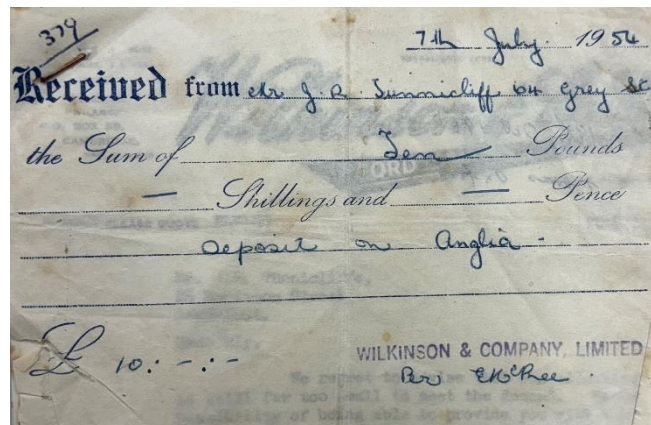 379
7th July. 1954
Received from Mr J. R. Tunnicliff 64 Grey St
the Sum of Ten Pounds
— Shillings and — Pence
Deposit on Anglia -
£ 10: - : -
WILKINSON & COMPANY, LIMITED
Per